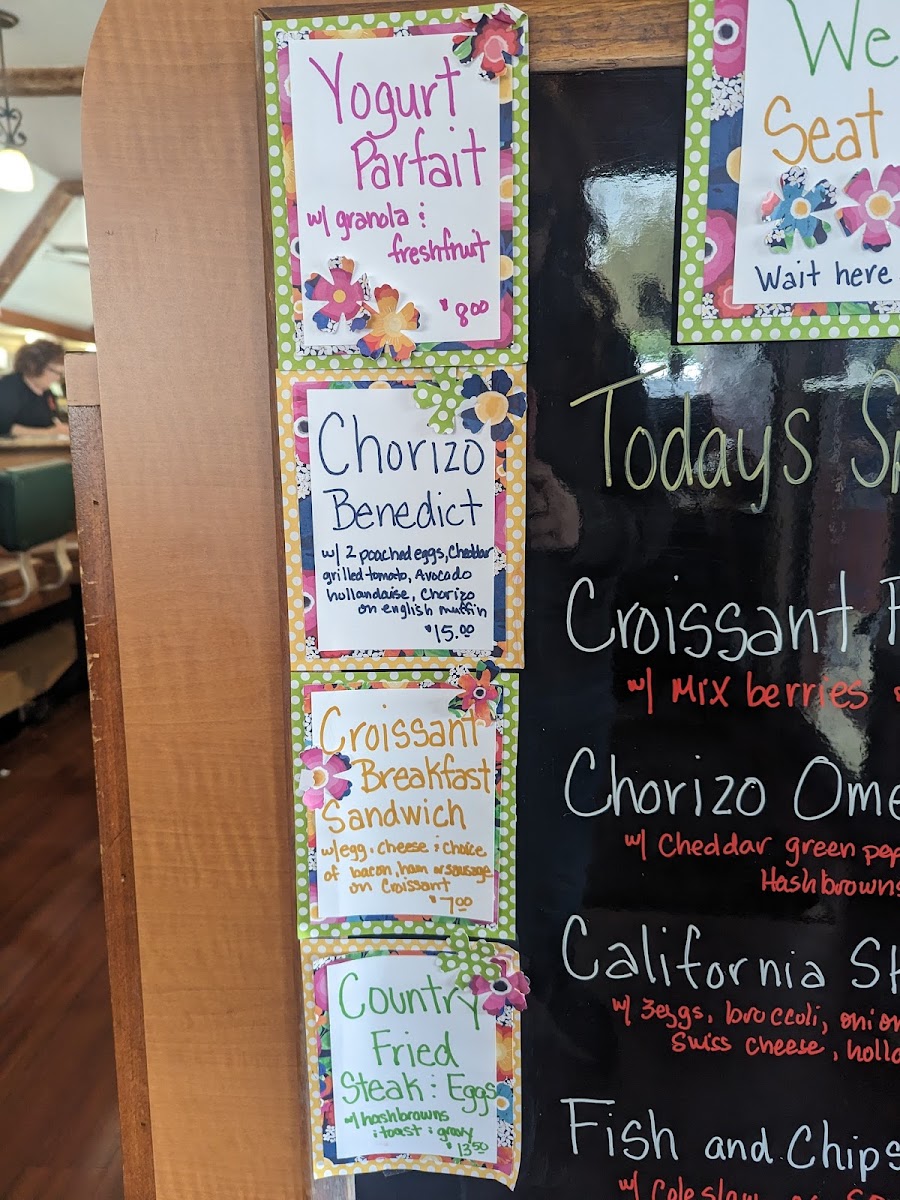 Yogurt
Parfait
w/ granola &
freshfruit
$8.00
Chorizo
Benedict
w/ 2 poached eggs, Cheddar
grilled tomato, Avocado
hollandaise, Chorizo
on english muffin
$15.00
Croissant
Breakfast
Sandwich
w/ egg & cheese & choice
of bacon, ham or sausage
on Croissant
$7.00
Country
Fried
Steak & Eggs
w/ hashbrowns
& toast & gravy
$13.50
We
Seat
Wait here
Todays Sp
Croissant F
w/ Mix berries
Chorizo Ome
w/ Cheddar green pep
Hashbrowns
California
w/ 3eggs, broccoli, onion
Swiss cheese, holla
Fish and Chips
w/ Coleslaw